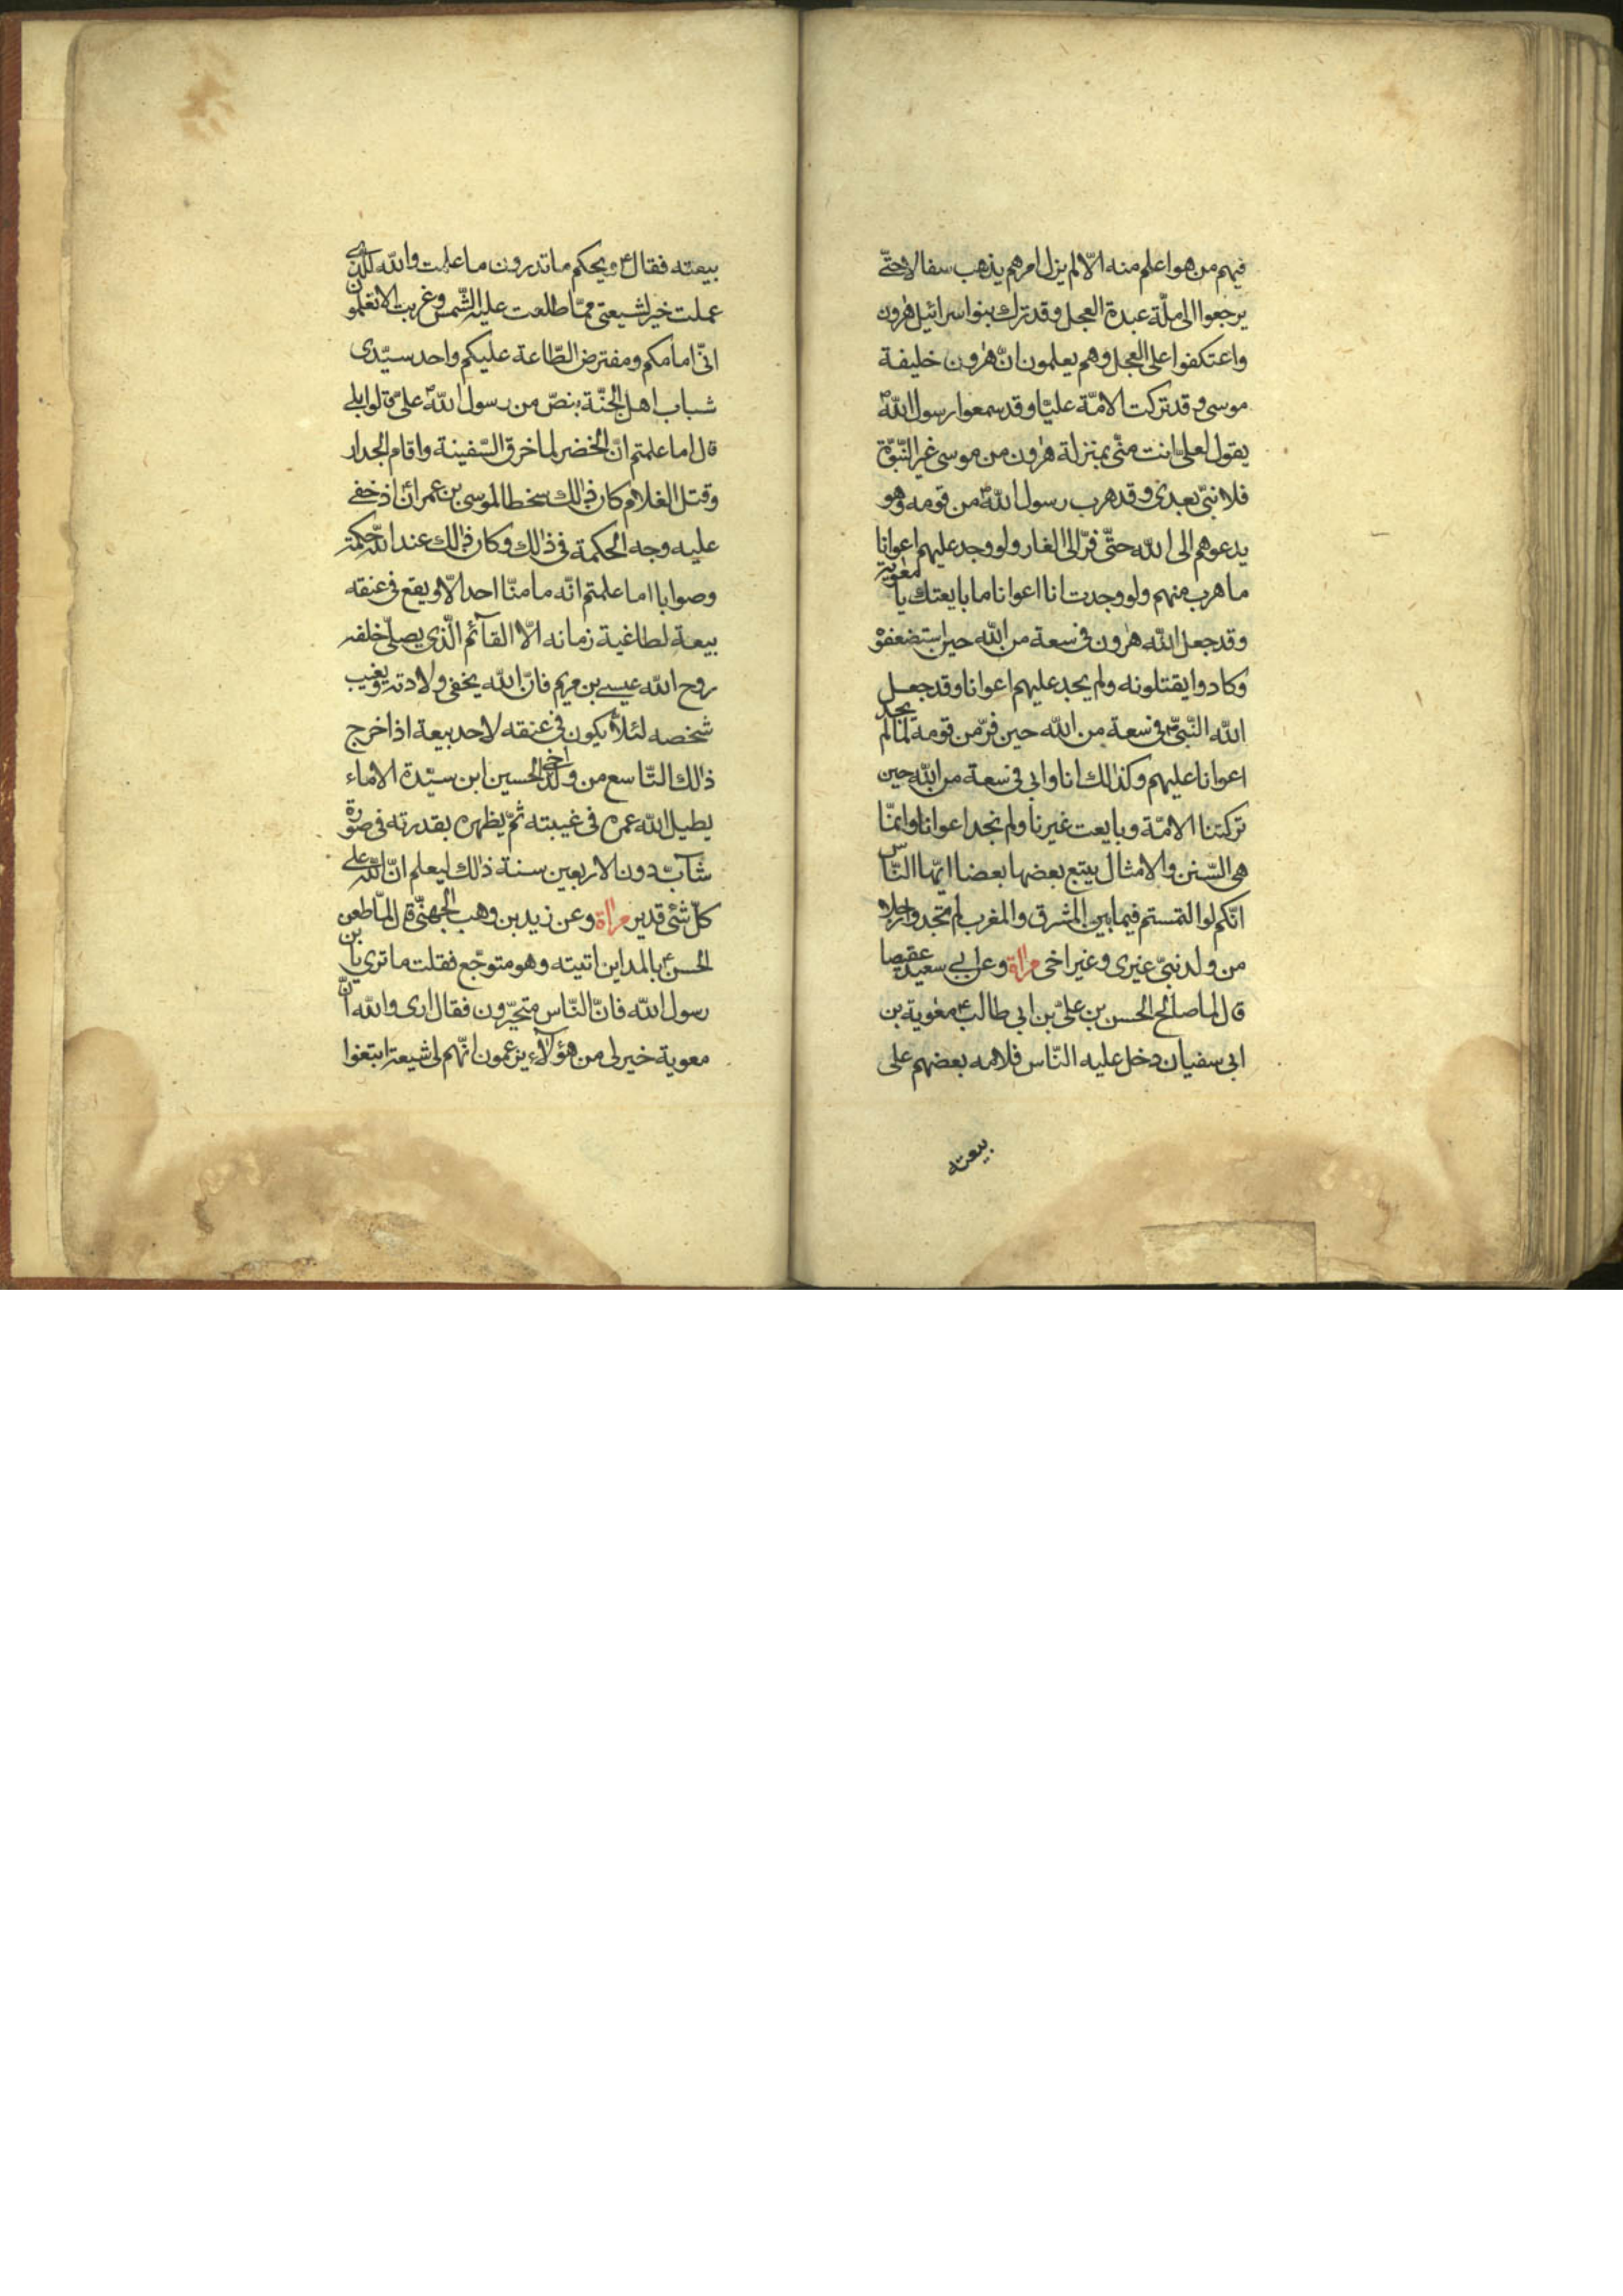 فيهم من هو اعلم منه الّا لم يزل امرهم يذهب سفالا حتّى
يرجعوا الى ملّة عبدة العجل وقد ترك بنوا سرائيل هٰرون
واعتكفوا على العجل وهم يعلمون انّ هٰرون خليفة
موسى وقد تركت الامّة عليّا وقد سمعوا رسول اللّه ص
يقول لعلى انت منّى بمنزلة هٰرون من موسى غير النّبوّة
فلا نبىّ بعدى وقد هرب رسول اللّه ص من قومه وهو
يدعوهم الى اللّه حتّى فرّ الى الغار ولو وجد عليهم اعوانا
ما هرب منهم ولو وجدت انا اعوانا ما بايعتك يا معٰوية
وقد جعل اللّه هٰرون فى سعة من اللّه حين استضعفوه
وكادوا يقتلونه ولم يجد عليهم اعوانا وقد جعل
اللّه النّبىّ ص فى سعة من اللّه حين فرّ من قومه لمّا لم يجد
اعوانا عليهم وكذٰلك انا وابى فى سعة من اللّه حين
تركتنا الامّة وبايعت غيرنا ولم نجد اعوانا وانمّا
هى السّنن والامثال يتبع بعضها بعضا ايّها النّاس
انّكم لو التمستم فيما بين المشرق والمغرب لم تجدوا رجلا
من ولد نبىّ غيرى وغير اخى وعن ابى سعيد عقيصا
قال لما صالح الحسن بن علىّ بن ابى طالب ع معٰوية بن
ابى سفيان دخل عليه النّاس فلامه بعضهم على
بيعته
بيعته فقال ع ويحكم ما تدرون ما علمت واللّه للّذى
عملت خير لشيعتى ممّا طلعت عليه الشّمس وغربت الا تعلمون
انّى امامكم ومفترض الطّاعة عليكم واحد سيّدى
شباب اهل الجنّة بنصّ من رسول اللّه ص علىّ قالوا بلى
قال اما علمتم انّ الخضر لما خرق السّفينة واقام الجدار
وقتل الغلام كان ذٰلك سخطا لموسى بن عمران اذ خفى
عليه وجه الحكمة فى ذٰلك وكان ذٰلك عند اللّه حكمة
وصوابا اما علمتم انّه ما منّا احد الّا ويقع فى عنقه
بيعة لطاغية زمانه الّا القآئم الّذى يصلّى خلفه
روح اللّه عيسى بن مريم فانّ اللّه يخفى ولادته ويغيب
شخصه لئلّا يكون فى عنقه لاحد بيعة اذا خرج
ذٰلك التّاسع من ولد اخى الحسين ابن سيّدة الاماء
يطيل اللّه عمره فى غيبته ثمّ يظهره بقدرته فى صورة
شآبّ دون الاربعين سنة ذٰلك ليعلم انّ اللّه على
كلّ شئ قدير وعن زيد بن وهب الجهنىّ قال لمّا طعن
الحسن ع بالمداين اتيته وهو متوجّع فقلت ما ترى يا بن
رسول اللّه فانّ النّاس متحيّرون فقال ارى واللّه انّ
معوية خير لى من هؤلآء يزعمون انّهم لى شيعة ابتغوا